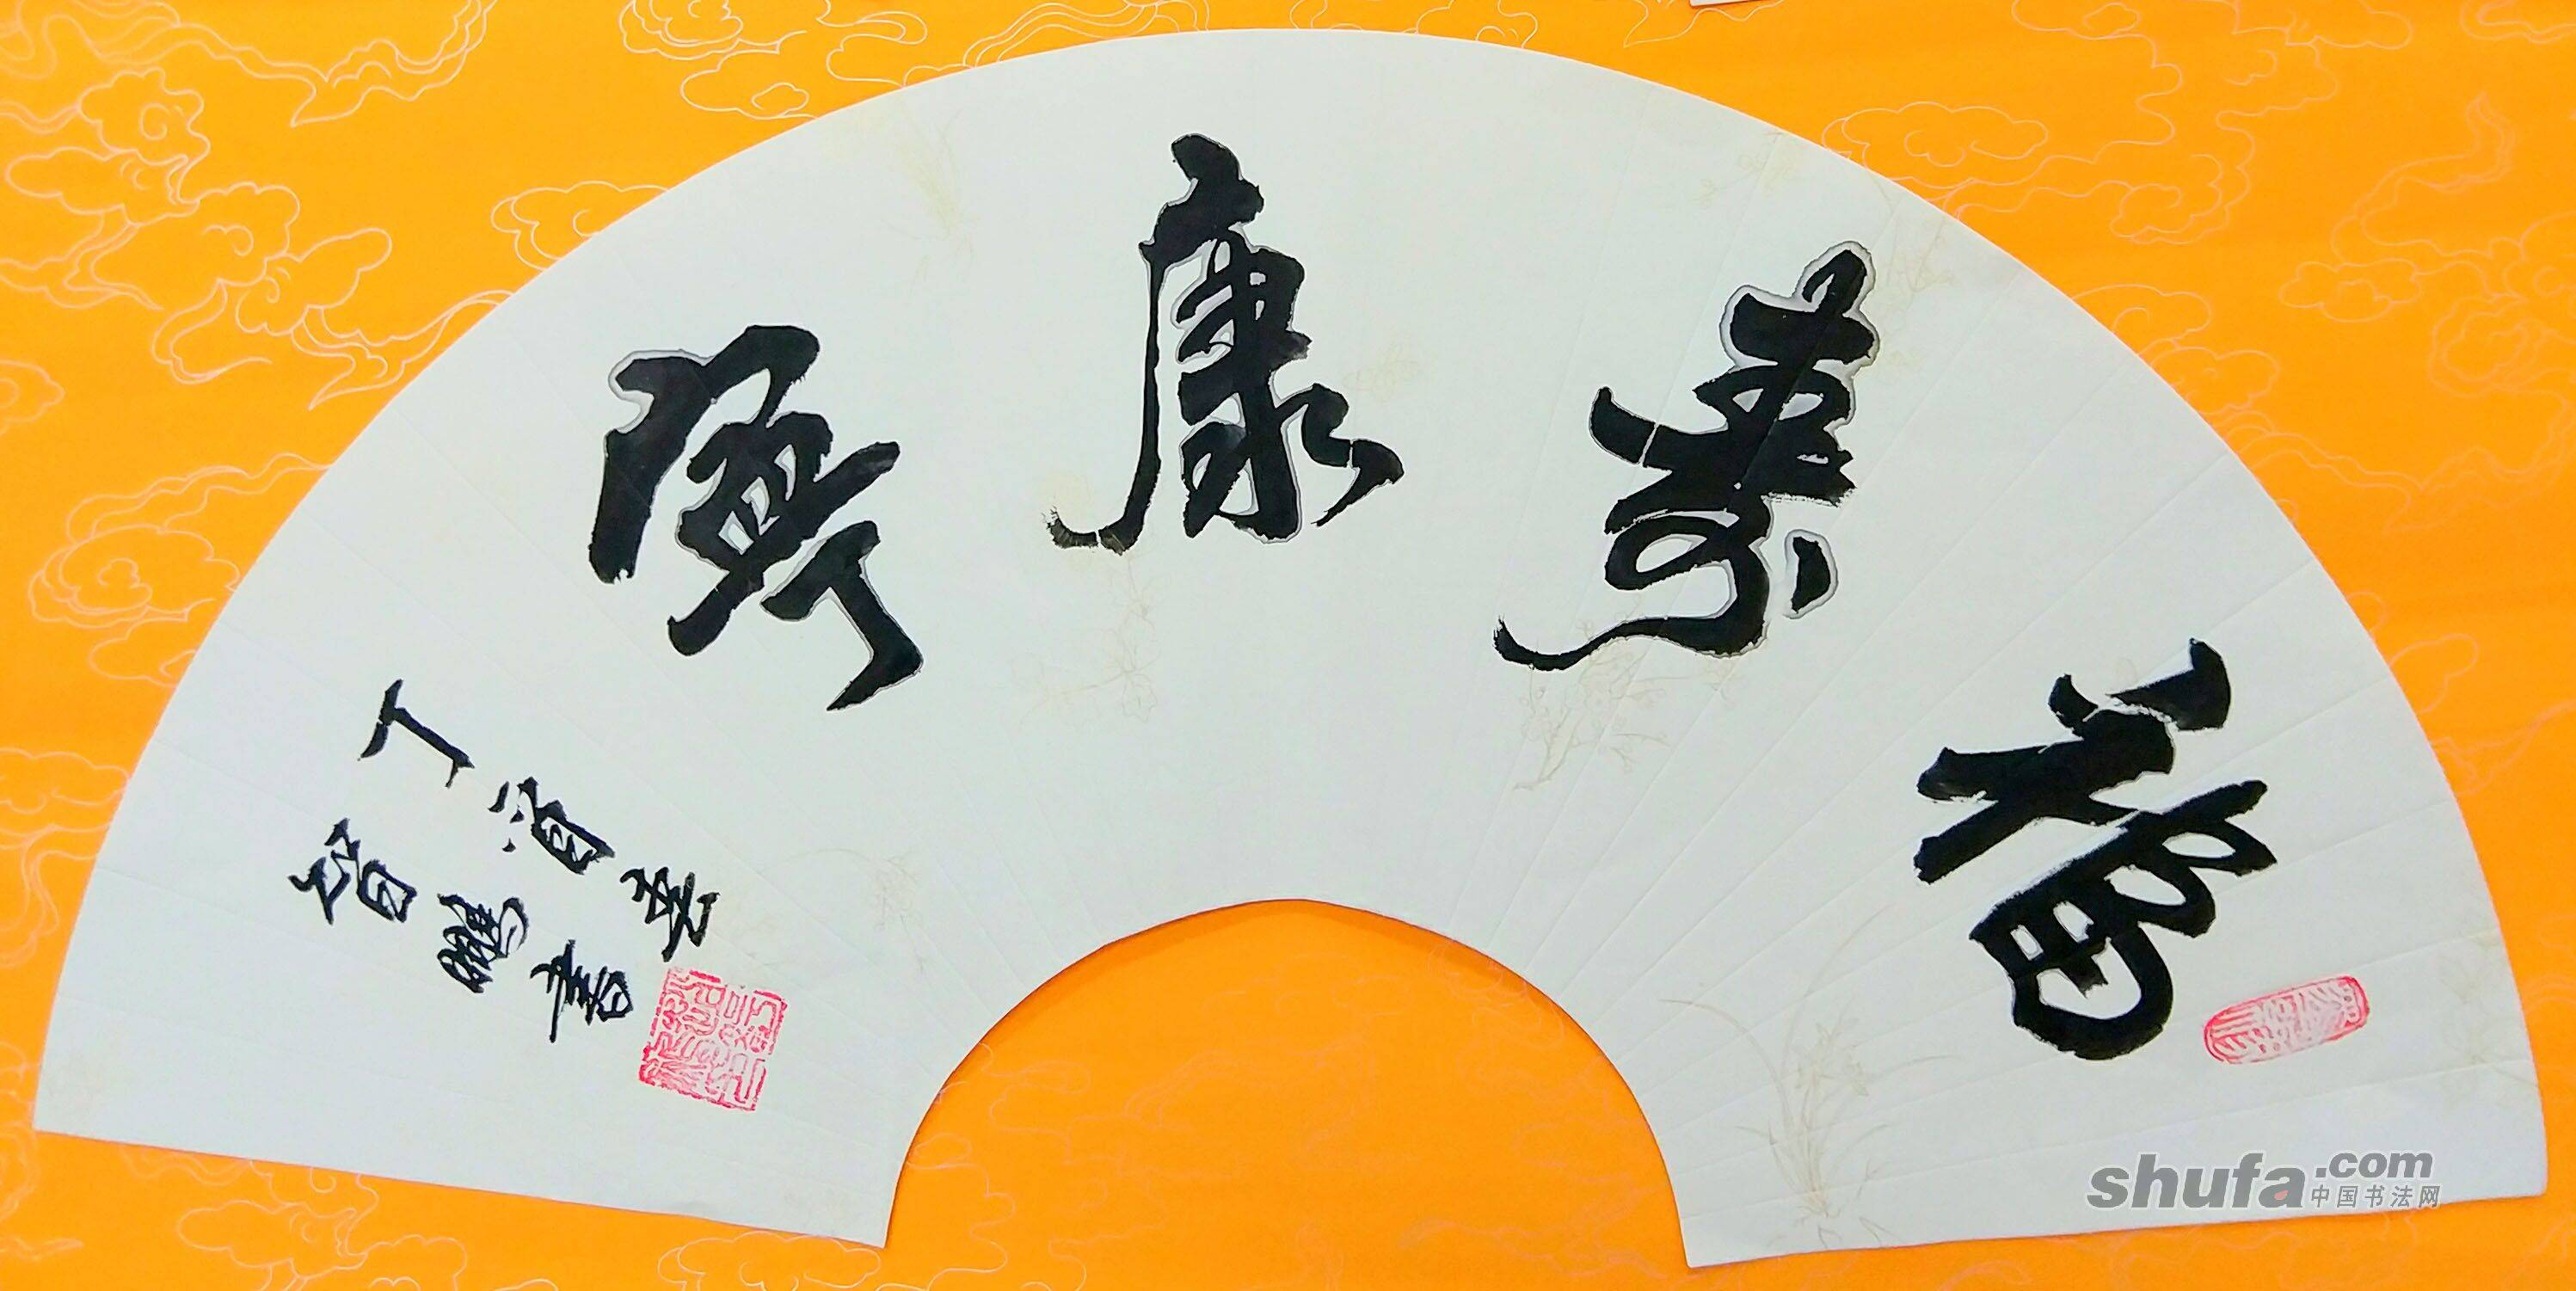 福壽康寧
丁酉年
智鵬書
shufa.com
中国书法网